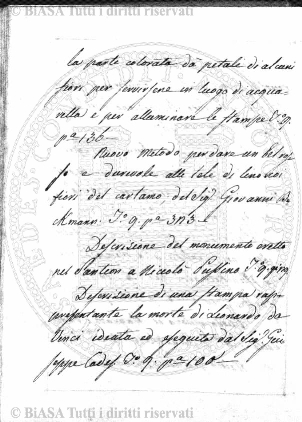 © BiASA Tutti i diritti riservati
la parte colorata da petale di alcuni
fiori per servirsene in luogo di acqua-
rella e per alluminare le stampe
pª 136
Nuovo Metodo per dare un bel ros-
so e durevole alle tele di lino coi
fiori del cartamo del Sigr Giovanni
kmann. Tº 9. pª 313
Descrizione del monumento eretto
nel Panteon a Niccolò Pussino Tº 9. pª
Descrizione di una stampa rap-
presentante la morte di Leonardo da
Vinci ideata ed eseguita dal Sigr Giu-
seppe Cades Tº 9. pª 100
© BiASA Tutti i diritti riservati